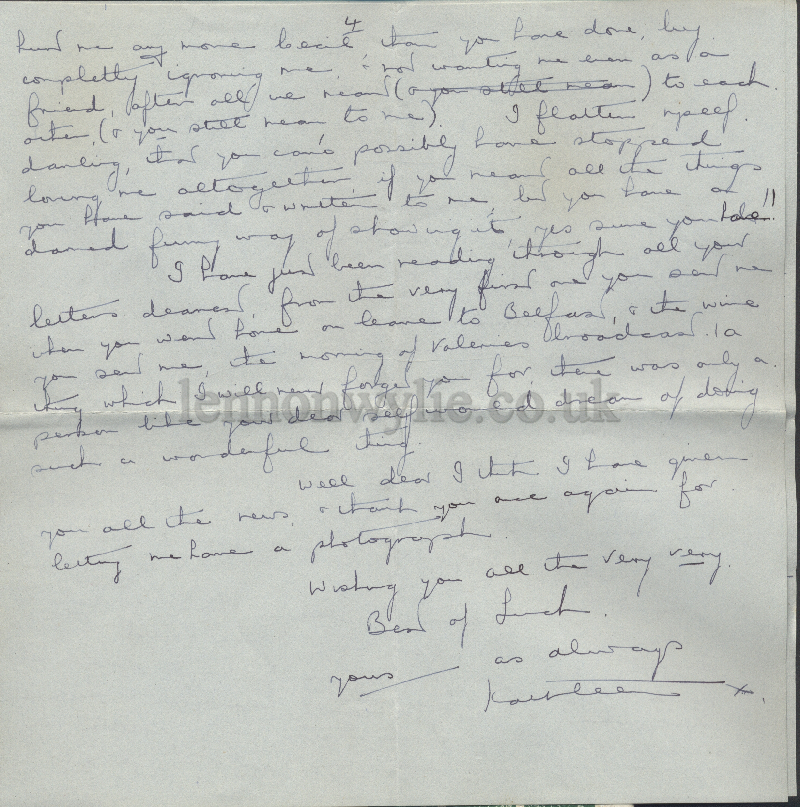 4
hurt me any more Cecil than you have done, by
completty ignoring me, & not wanting me even as a
friend, after all we meant (& you still mean) to each
other, (& you still mean to me). I flatter myself
darling, that you can't possibly have stopped
loving me altogether, if you meant all the things
you have said & written to me, but you have a
darned funny way of showing it, yes sure you have!!
I have just been reading through all your
letters dearest, from the very first one you sent me
when you went home on leave to Belfast, & the wire
you sent me, the morning of Valeries broadcast. (a
thing which I will never forget you for, there was only a
person like your dear self would dream of doing
such a wonderful thing.
Well dear I think I have given
you all the news, & thank you once again for
letting me have a photograph.
Wishing you all the very very
Best of Luck.
yours as always
Kathleen x.
lennonwylie.co.uk